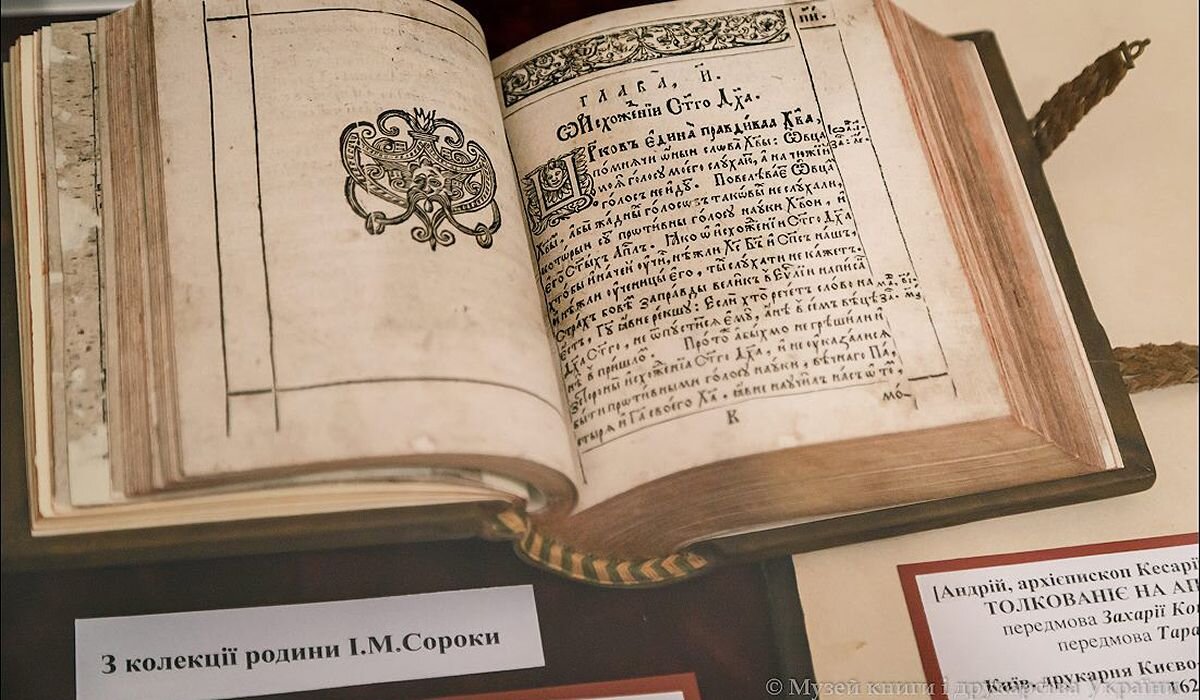 ГЛАВА, И҃.
Ѿ Исхоженїи Ст҃го Дх҃а.
Церковъ єдина правдиваа Хв҃а,
помнячи ѡным слова Хв҃ы: Ѡвца
моѧ голосу моего слухаю, а на чижїй
голосъ нейду. Повелѣває Ѡвца
Хв҃ы, абы жадны голосѡ з таковы не слухали,
которыи су противны голосу науки Хв҃ои, и
его Ст҃ыхъ Ап҃лъ. Яко ѡ исхоженїи Ст҃го Дх҃а
кто бы иначей учи, нѣжли Хс҃ Бг҃ъ и Сп҃съ нашъ,
и нѣжли ученицы его, ты слухати не кажетъ.
Страхъ бовѣ заправды великъ в Еѵлїи написа
єстъ, Гу явне рекшу: Если хто речетъ слово на
Дх҃а Ст҃го, не ѿпустися ему, ани в семъ вѣце
нѣ в пришло. Прото абыхмо не грѣшили и
стороны исхоженїа Ст҃го Дх҃а, и не указалися
быти противными голосу науки, вѣчнаго Па,
стырѧ и Га своего Ха, явне научил насъ ѡ то,
мо-
К
З колекції родини І.М.Сороки
[Андрій, архієпископ Кесарі
ТОЛКОВАНІЄ НА АП
передмова Захарії Ко
передмова Тара
Київ, друкарня Києво
162
© Музей книги і друкарства України